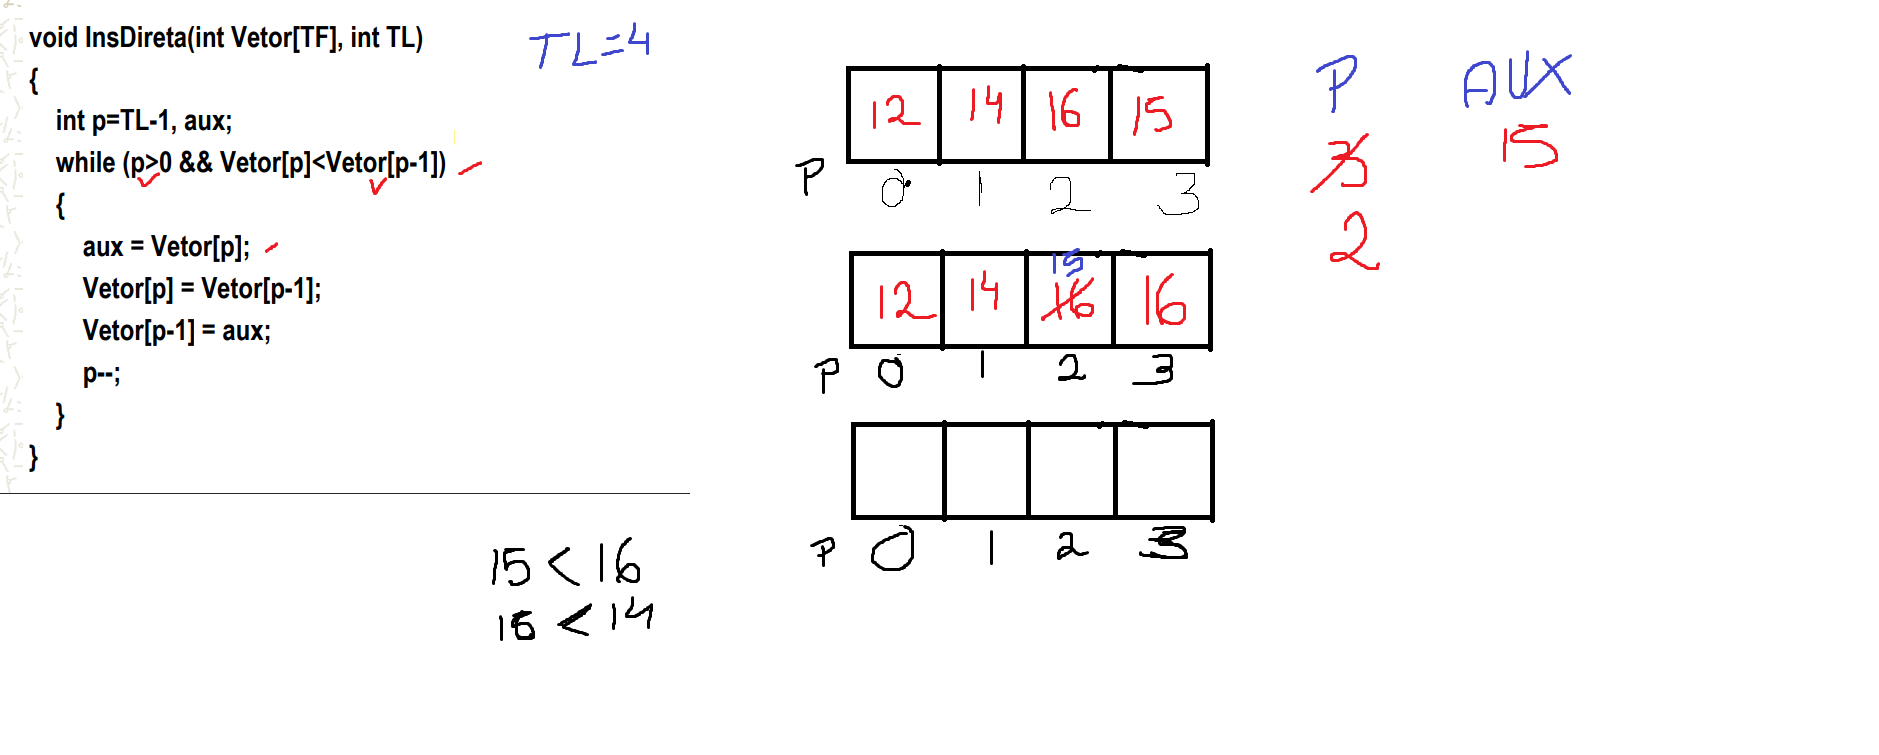 void InsDireta(int Vetor[TF], int TL)
{
int p=TL-1, aux;
while (p>0 && Vetor[p]<Vetor[p-1])
{
aux = Vetor[p];
Vetor[p] = Vetor[p-1];
Vetor[p-1] = aux;
p--;
}
}
TL=4
12 14 16 15
P 0 1 2 3
15
12 14 16 16
P 0 1 2 3
P 0 1 2 3
P AUX
3 15
2
15 < 16
15 < 14